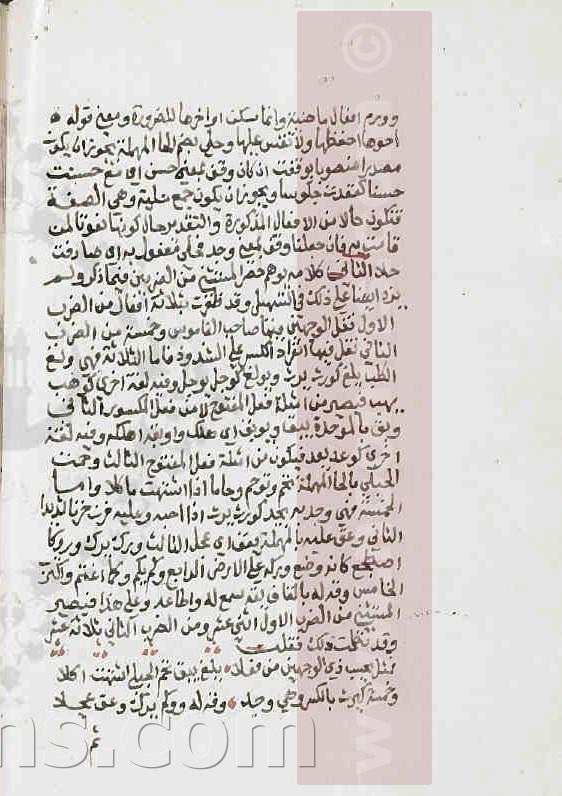 وورم افعال ماضية وانما سكنت اواخرها للضرورة ومعنى قوله
احوها احفظها ولا تقس عليها وحلى بضم الحا المهملة يجوز ان يكون
مصدرا منصوبا بوقفت اذ كان وقف بمعنى حسن اي مع حسنت
حسنا كقعدت جلوسا ويجوز ان يكون جمع حلية وهي الصفة
فتكون حالا من الافعال المذكورة والتقدير حال كونها نعوتا لمن
قامت به فان جعلنا وفق بمعنى وجد فحلى مفعول به اي صادفت
حلا الثاني كلامه يوهم حصر المستثنى من الضربين فيما ذكر ولم
يزد ايضا على ذلك في التسهيل وقد ظفرت بثلاثة افعال من الضرب
الاول نقل الوجهين فيها صاحب القاموس وخمسة من الضرب
الثاني نقل فيها انفراد الكسر على الشذوذ فاما الثلاثة فهي ولغ
الكلب يلغ كورث يرث ويولغ كوجل يوجل وفيه لغة اخرى كوهب
يهب فيصير من امثلة فعل المفتوح لا من فعل المكسور الثاني
وبق بالموحدة يبق ويوبق اي هلك واوبقه اهلكه وفيه لغة
اخرى كوعد يعد فيكون من امثلة فعل المفتوح الثالث وحمت
الحبلى بالحا المهملة تحم وتوحم وحاما اذا اشتهت ماكلا واما
الخمسة فهي وجد به يجد كورث يرث اذا احبه وعليه حزن حزنا شديدا
الثاني وعق عليه بالمهملة يعق اي عجل الثالث ورك يرك وروكا
اضطجع كانه وضع وركه على الارض الرابع وكم يكم وكما اغتم واكتئب
الخامس وقه له بالقاف يقه سمع له واطاعه وعلى هذا فيصير
المستثنى من الضرب الاول اثنى عشر ومن الضرب الثاني ثلاثة عشر
وقد نظمت ذلك فقلت
كمثل يحسب ذي الوجهين من فعلا يلغ يبق تحم الحبلى اشتهت اكلا
وخمسة كيرث بالكسر وهي وجد وقه له ووكم يرك وعق عجلا
ثم
ns.com